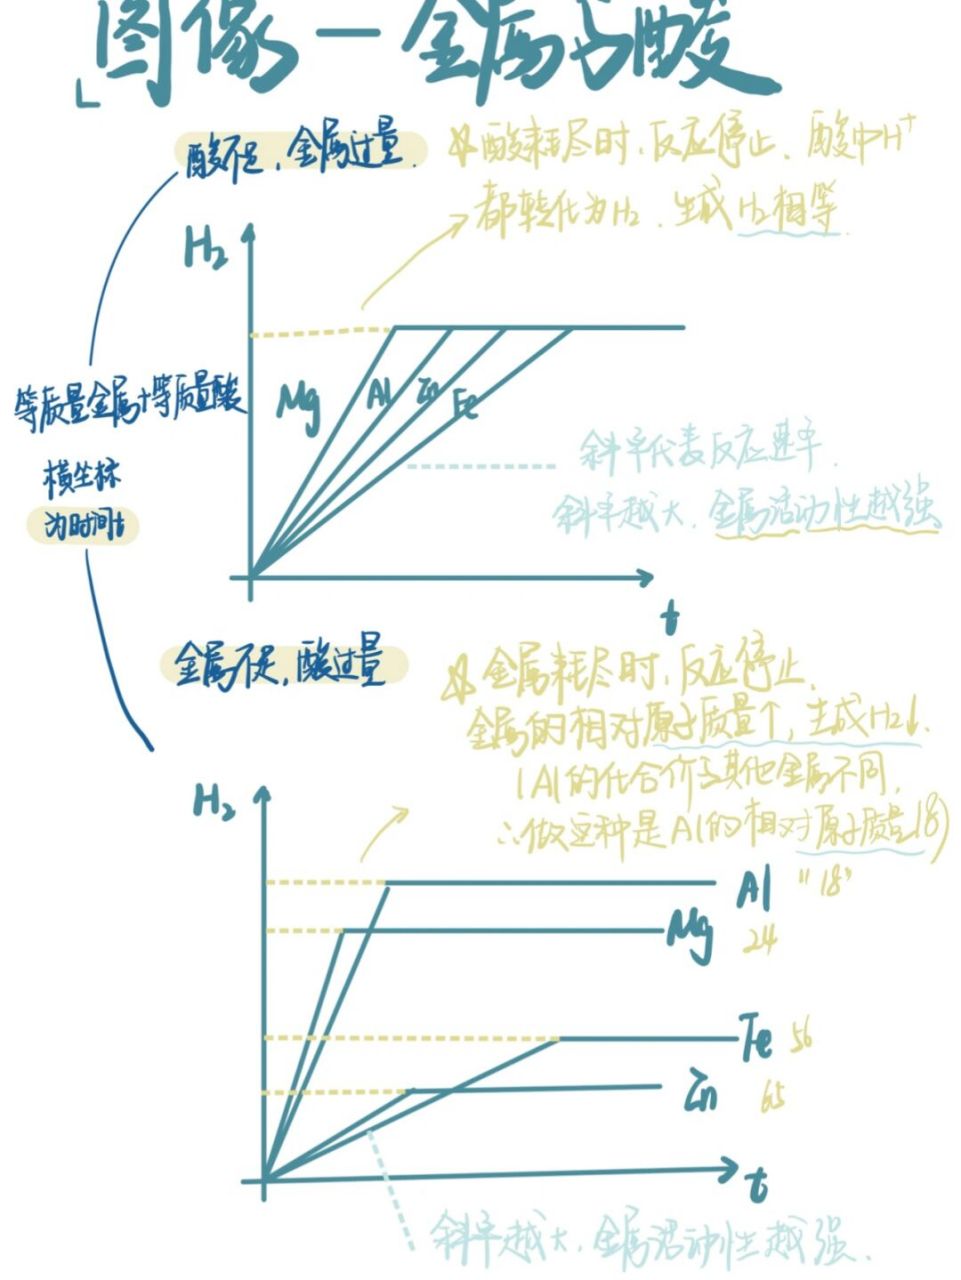 「图像一金属与酸
酸不足，金属过量.
酸耗尽时，反应停止、酸中H⁺
都转化为H₂，生成H₂相等.
H₂
Mg Al Zn Fe
等质量金属+等质量酸
横坐标
为时间t
斜率代表反应速率.
斜率越大，金属活动性越强
t
金属不足，酸过量
金属耗尽时，反应停止.
金属的相对原子质量↑，生成H₂↓.
(Al的化合价与其他金属不同,
∴做这种是Al的相对原子质量18)
H₂
Al "18"
Mg 24
Fe 56
Zn 65
t
斜率越大，金属活动性越强.